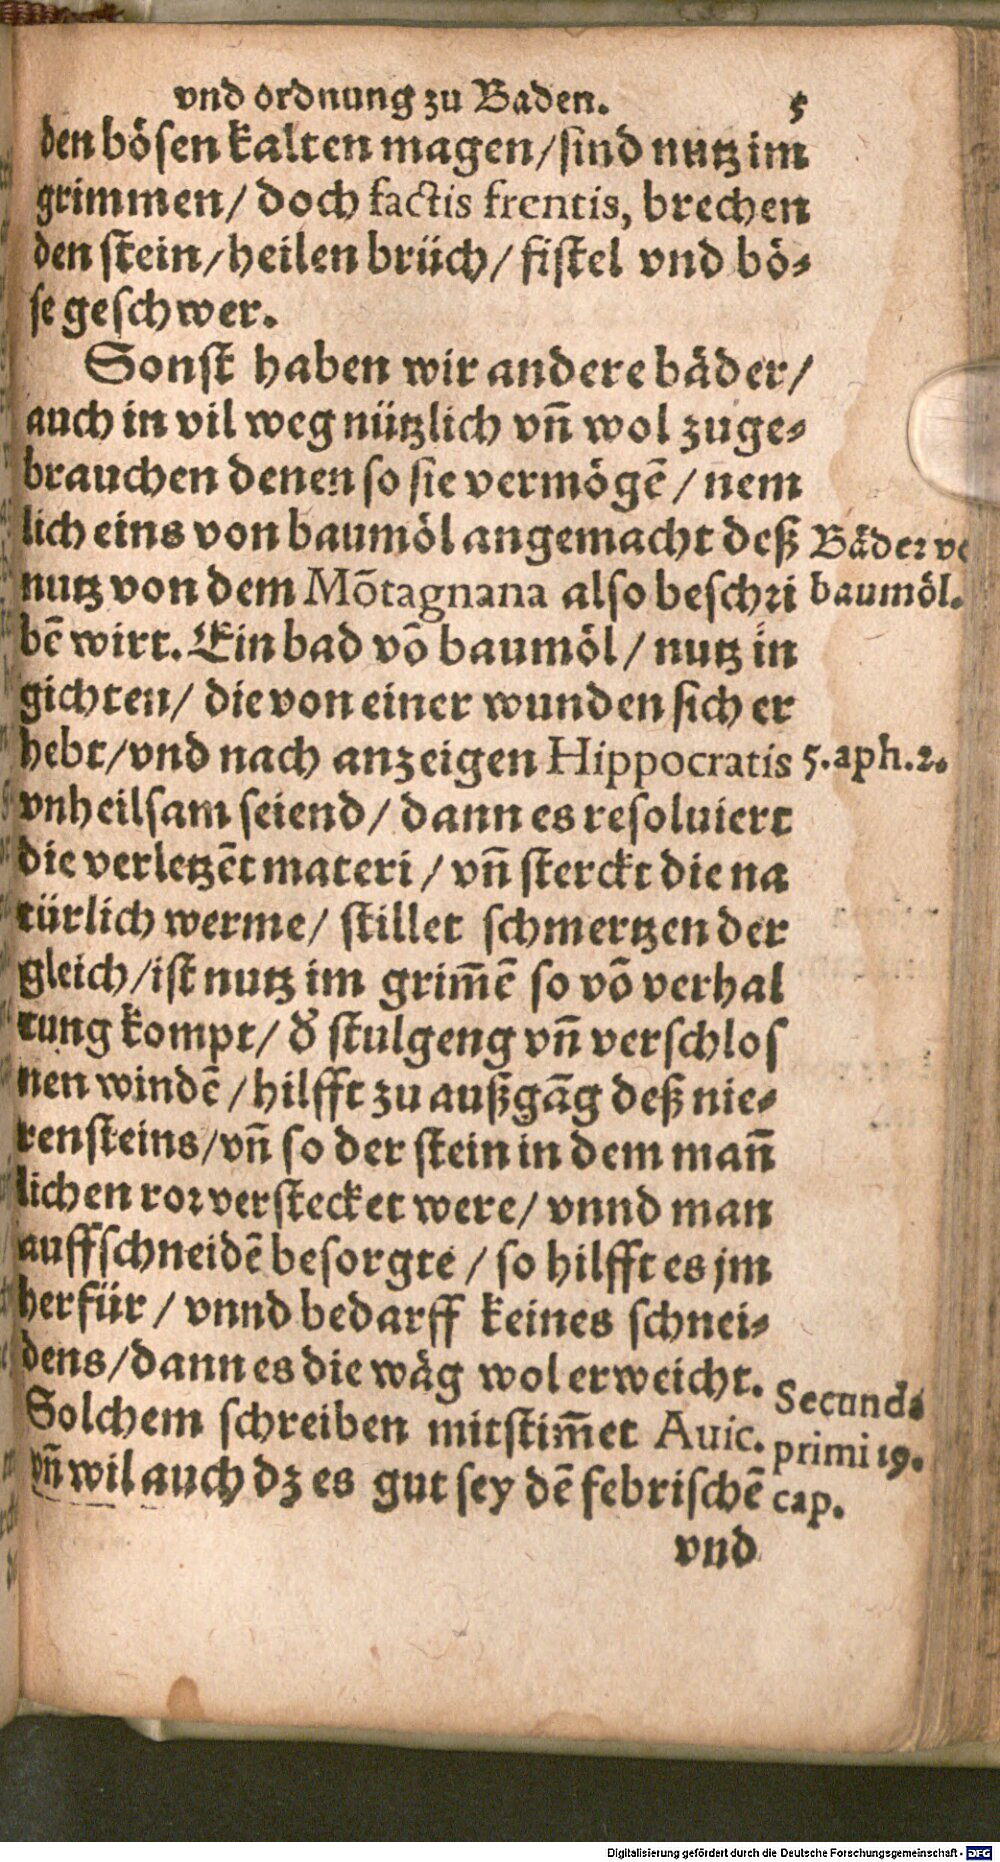 vnd ordnung zu Baden. 5
den bösen kalten magen/sind nutz im
grimmen/ doch factis frentis, brechen
den stein/heilen brüch/ fistel vnd bö⸗
se geschwer.
Sonst haben wir andere bäder/
auch in vil weg nützlich vn̄ wol zuge⸗
brauchen denen so sie vermögē/ nem
lich eins von baumöl angemacht deß
Bäder vo
nutz von dem Mōtagnana also beschri
baumöl.
bē wirt. Ein bad vō baumöl/ nutz in
gichten/ die von einer wunden sich er
hebt/vnd nach anzeigen Hippocratis
5. aph. 2.
vnheilsam seiend/ dann es resoluiert
die verletzēt materi/ vn̄ sterckt die na
türlich werme/ stillet schmertzen der
gleich/ist nutz im grim̄ē so vō verhal
tung kompt/ d̓ stulgeng vn̄ verschlos
nen windē/hilfft zu außgāg deß nie⸗
rensteins/vn̄ so der stein in dem man̄
lichen ror verstecket were/ vnnd man
auffschneidē besorgte/ so hilfft es jm
herfür/ vnnd bedarff keines schnei⸗
dens/dann es die wäg wol erweicht.
Solchem schreiben mitstim̄et Auic.
Secunda
primi 19.
cap.
vn̄ wil auch dz es gut sey dē febrischē
vnd
Digitalisierung gefördert durch die Deutsche Forschungsgemeinschaft - DFG